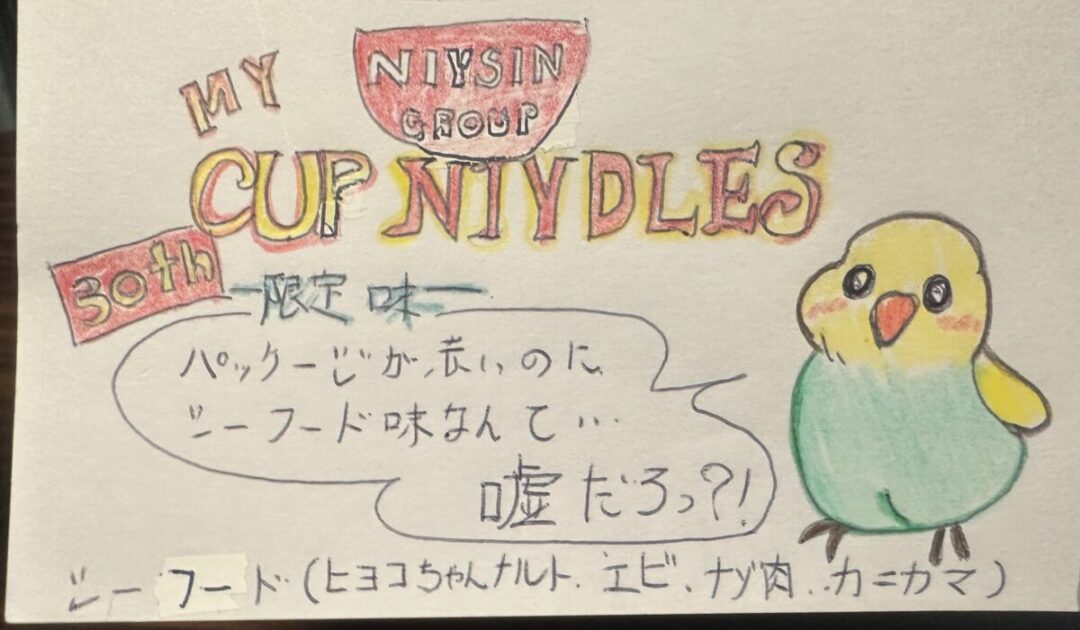 MY
NIYSIN
GROUP
CUP NIYDLES
30th
ー限定 味ー
パッケージが赤いのに、
シーフード味なんて…
嘘だろっ?!
シーフード(ヒヨコちゃんナルト、エビ、ナゾ肉、カニカマ)